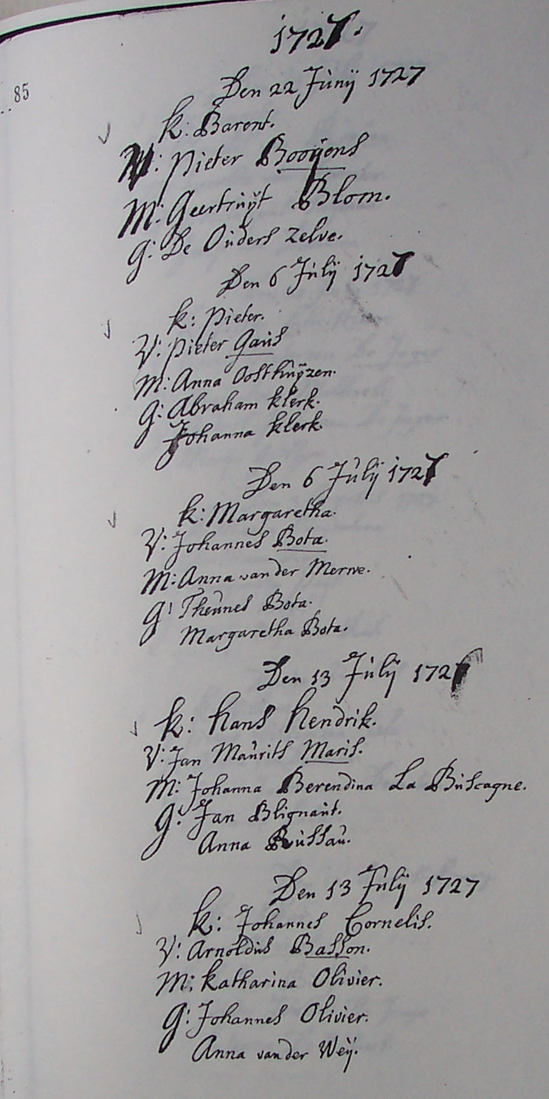 1727.
85
Den 22 Junij 1727
k: Barent.
V: Pieter Booÿens
M: Geertruÿt Blom.
G: De Ouders zelve.
Den 6 Julij 1727
k: Pieter.
V: Pieter Gaus
M: Anna Oosthuÿzen.
G: Abraham klerk.
Johanna klerk.
Den 6 Julij 1727
k: Margaretha.
V: Johannes Bota.
M: Anna van der Merwe.
G: Theunes Bota.
Margaretha Bota.
Den 13 Julij 1727
k: hans hendrik.
V: Jan Maurits Maris.
M: Johanna Berendina La Buscagne.
G: Jan Blignaut.
Anna Russau.
Den 13 Julij 1727
k: Johannes Cornelis.
V: Arnoldus Basson.
M: katharina Olivier.
G: Johannes Olivier.
Anna van der Weÿ.